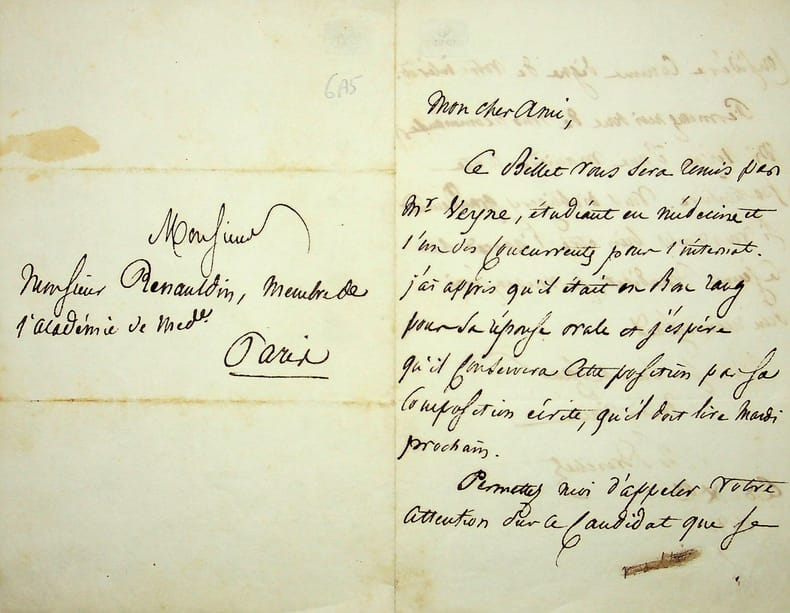 6A5
Monsieur
Monsieur Renauldin, membre de
l'académie de Medne
Paris
Mon cher Ami,
Ce Billet vous sera remis par
Mr Veyne, étudiant en médecine et
l'un des Concurrents pour l'internat.
j'ai appris qu'il était en Bon rang
pour sa réponse orale et j'espère
qu'il Conservera cette position par sa
Composition écrite, qu'il doit lire Mardi
prochain.
Permettez moi d'appeler votre
attention sur ce Candidat que je